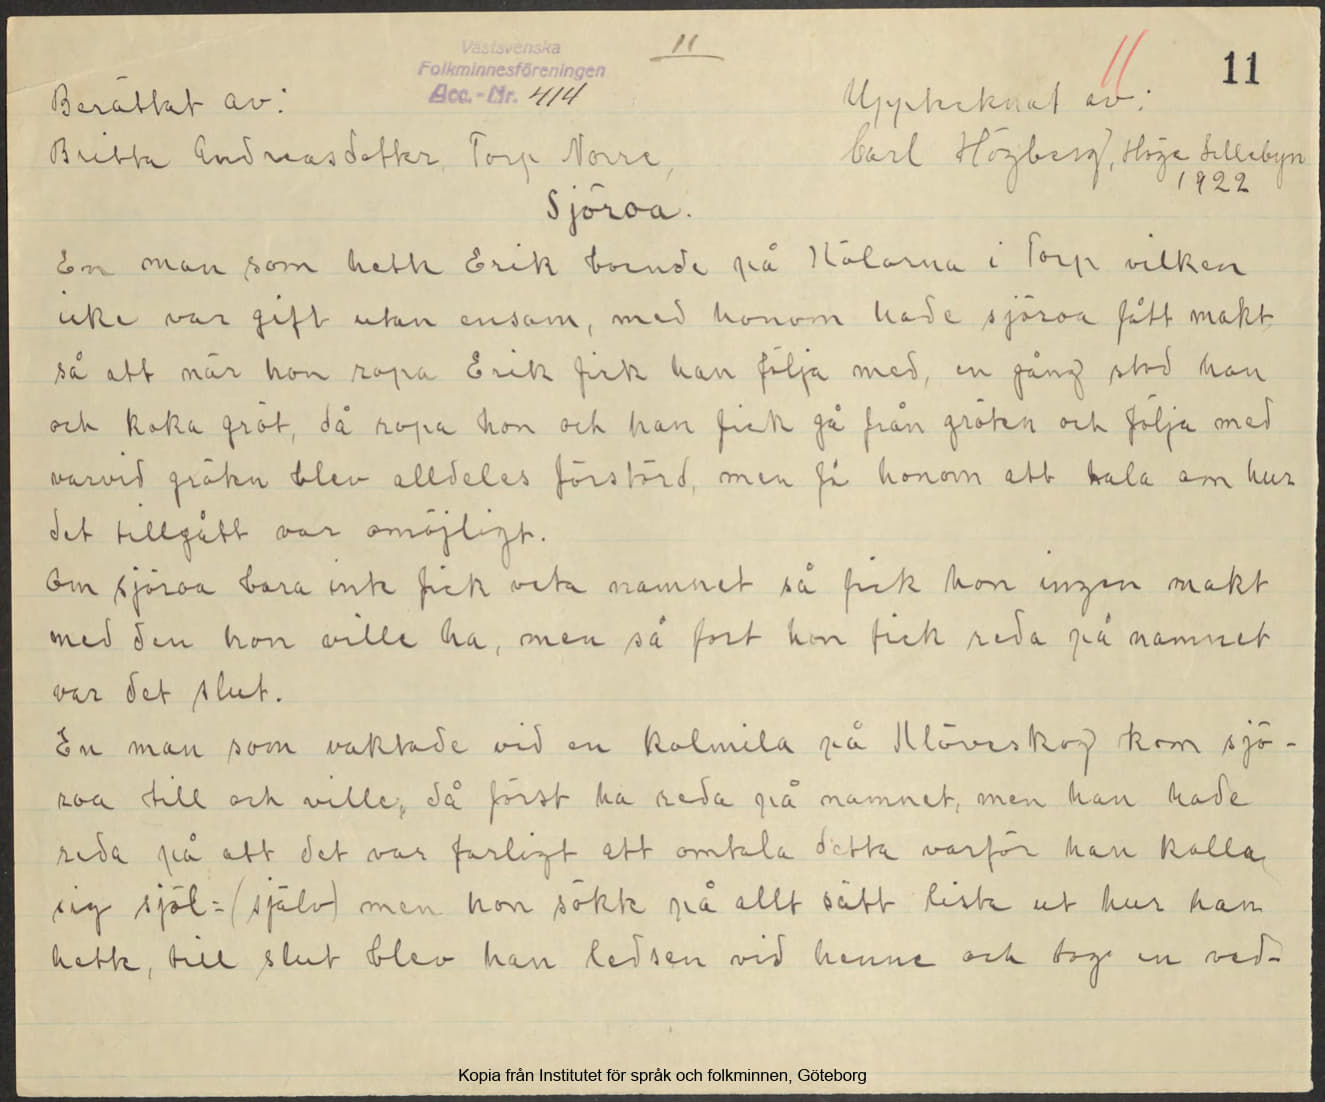 11
Västsvenska
Folkminnesföreningen
Acc.-Nr. 414
11
11
Berättat av:
Britta Andreasdotter, Torp Norra,
Upptecknat av:
Carl Högberg, Höge Lillebyn
1922
Sjöroa.
En man som hette Erik boende på Kålarna i Torp vilken
icke var gift utan ensam, med honom hade sjöroa fått makt
så att när hon ropa Erik fick han följa med, en gång stod han
och koka gröt, då ropa hon och han fick gå från gröten och följa med
varvid gröten blev alldeles förstörd, men få honom att tala om hur
det tillgått var omöjligt.
Om sjöroa bara inte fick veta namnet så fick hon ingen makt
med den hon ville ha, men så fort hon fick reda på namnet
var det slut.
En man som vaktade vid en kolmila på Klöveskog kom sjö-
roa till och ville, då först ha reda på namnet, men han hade
reda på att det var farligt att omtala detta varför han kalla
sig sjöl=(själv) men hon sökte på allt sätt lista ut hur han
hette, till slut blev han ledsen vid henne och tog en ved-
Kopia från Institutet för språk och folkminnen, Göteborg